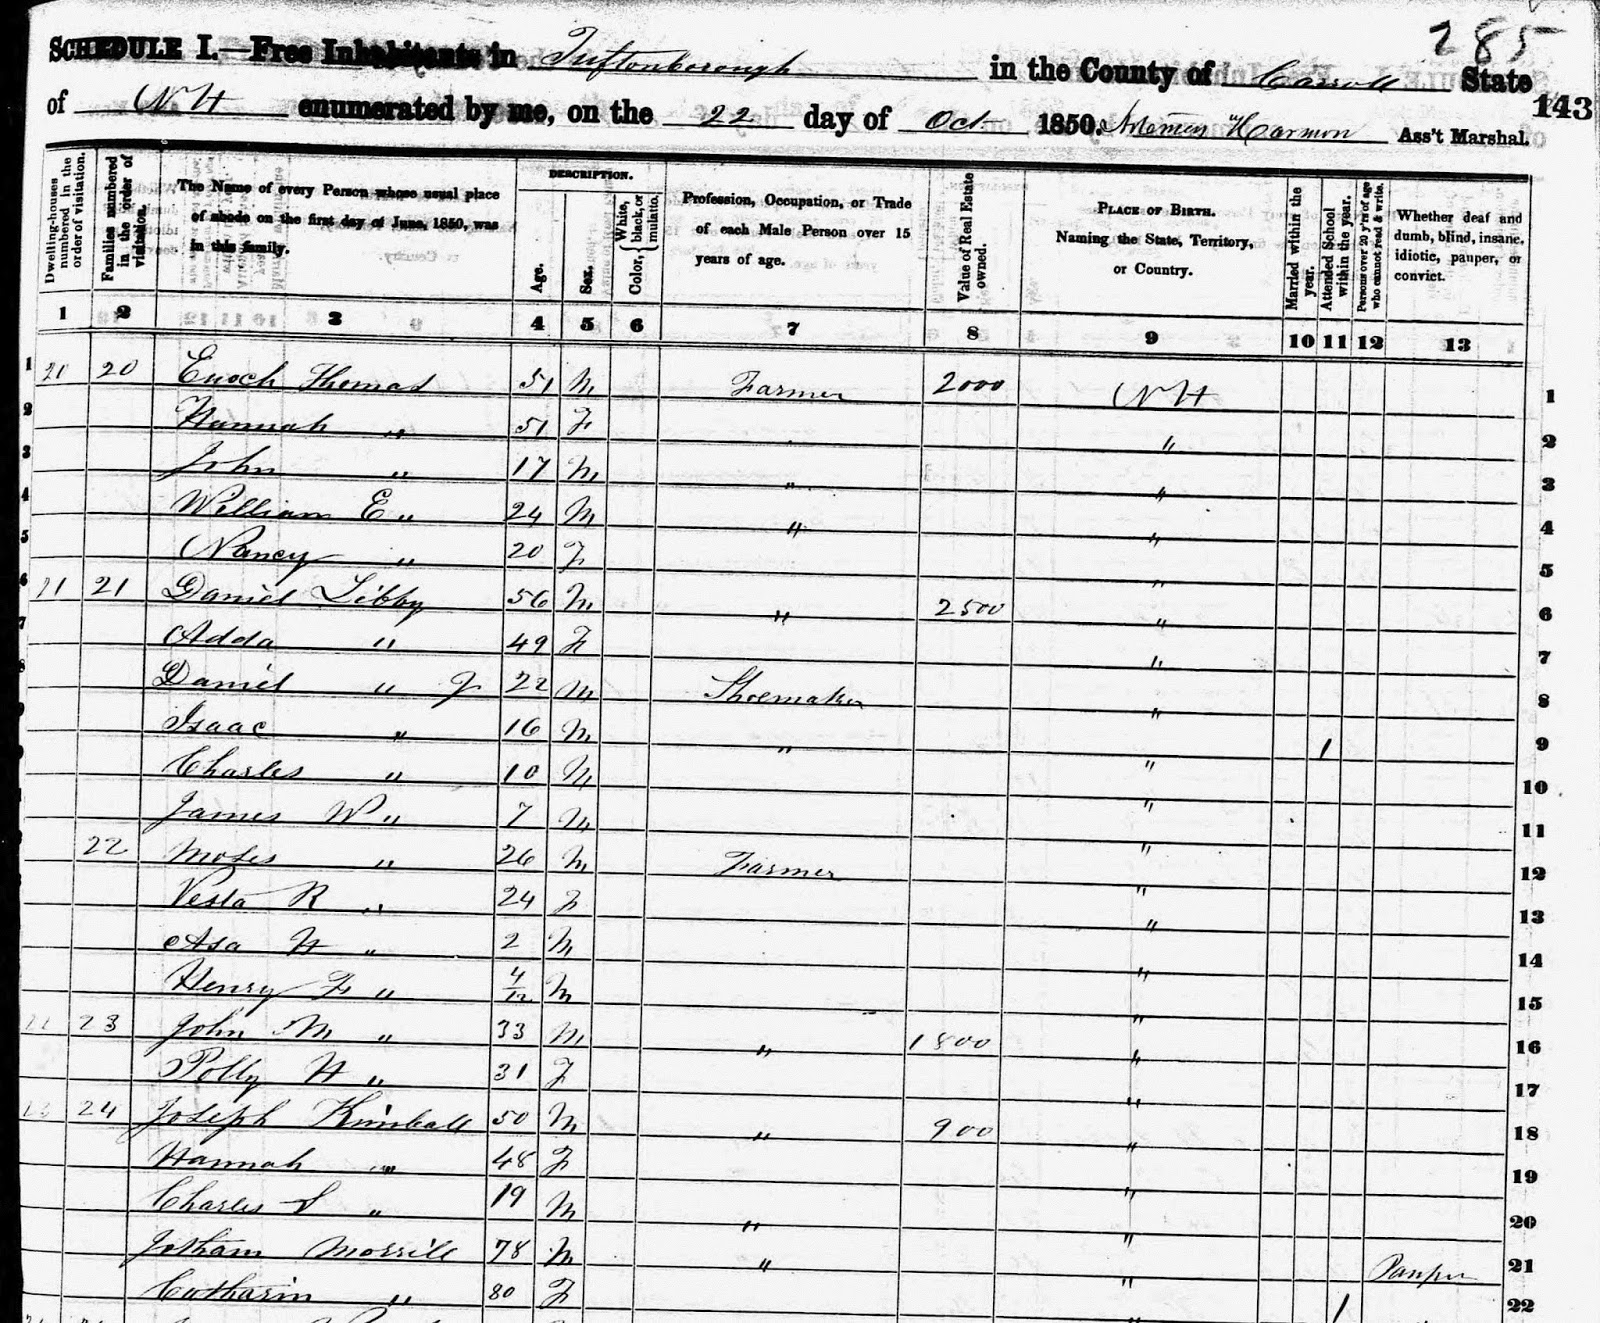 285
SCHEDULE I.—Free Inhabitants in Tuftonborough in the County of Carroll State
of NH enumerated by me, on the 22 day of Oct 1850. Harmon Ass't Marshal.
143
Dwelling-houses numbered in the order of visitation.
Families numbered in the order of visitation.
The Name of every Person whose usual place of abode on the first day of June, 1850, was in this family.
DESCRIPTION.
Age.
Sex.
Color, { White, black, or mulatto.
Profession, Occupation, or Trade of each Male Person over 15 years of age.
Value of Real Estate owned.
PLACE OF BIRTH. Naming the State, Territory, or Country.
Married within the year.
Attended School within the year.
Persons over 20 y'rs of age who cannot read & write.
Whether deaf and dumb, blind, insane, idiotic, pauper, or convict.
1 2 3 4 5 6 7 8 9 10 11 12 13
1 20 20 Enoch Thomas 51 M Farmer 2000 NH 1
2 Hannah " 51 F " 2
3 John " 17 M " " 3
4 William E " 24 M " " 4
5 Nancy " 20 F " 5
6 21 21 Daniel Libby 56 M " 2500 " 6
7 Adda " 49 F " 7
8 Daniel " J 22 M Shoemaker " 8
9 Isaac " 16 M " " 1 9
Charles " 10 M " 10
James W " 7 M " 11
22 Moses " 26 M Farmer " 12
Vesta R " 24 F " 13
Asa H " 2 M " 14
Henry F " 4/12 M " 15
22 23 John M " 33 M " 1800 " 16
Polly H " 31 F " 17
23 24 Joseph Kimball 50 M " 900 " 18
Hannah " 48 F " 19
Charles S " 19 M " " 20
Jotham Morrill 78 M " " Pauper 21
Catharin " 80 F " 1 22